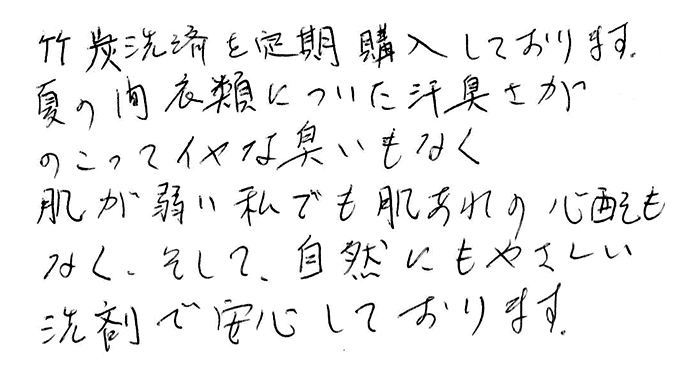 竹炭洗済を定期購入しております。
夏の間衣類についた汗臭さが
のこってイヤな臭いもなく
肌が弱い私でも肌あれの心配も
なく、そして、自然にもやさしい
洗剤で安心しております。